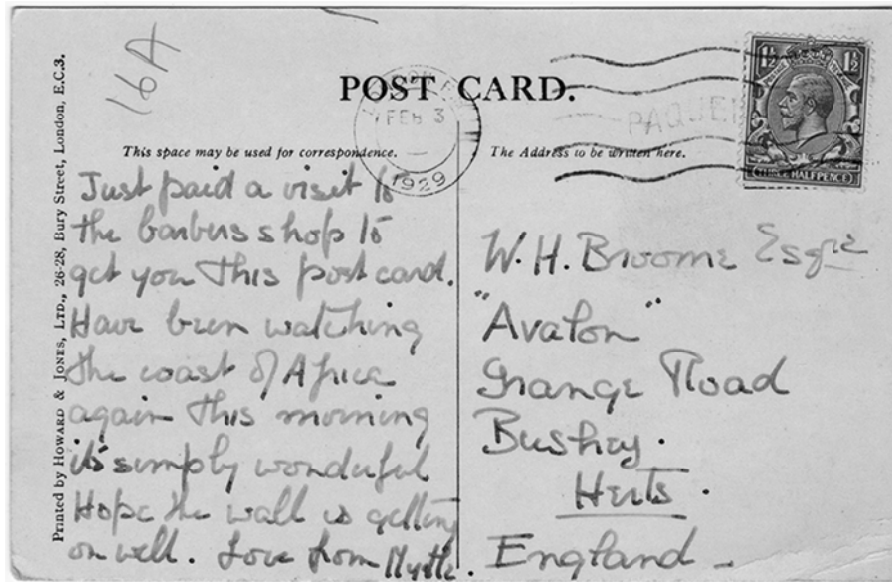 16A
POST CARD.
FEB 3
1929
PAQUEB
1½ 1½
THREE HALFPENCE
Printed by HOWARD & JONES, LTD., 26-28, Bury Street, London, E.C.3.
This space may be used for correspondence.
Just paid a visit to
the barbers shop to
get you this post card.
Have been watching
the coast of Africa
again this morning
it's simply wonderful
Hope the wall is getting
on well. Love from Myrtle.
The Address to be written here.
W. H. Broome Esqre
"Avalon"
Grange Road
Bushey.
Herts.
England